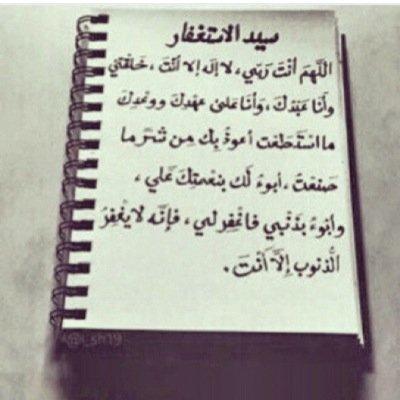 سيد الاستغفار
اللّهم أنت ربّي، لا إله إلا أنت، خلقتني
وأنا عبدك، وأنا على عهدك ووعدك
ما استطعت أعوذ بك من شر ما
صنعت، أبوء لك بنعمتك علي،
وأبوء بذنبي فاغفرلي، فإنّه لا يغفر
الذنوب إلّا أنت.